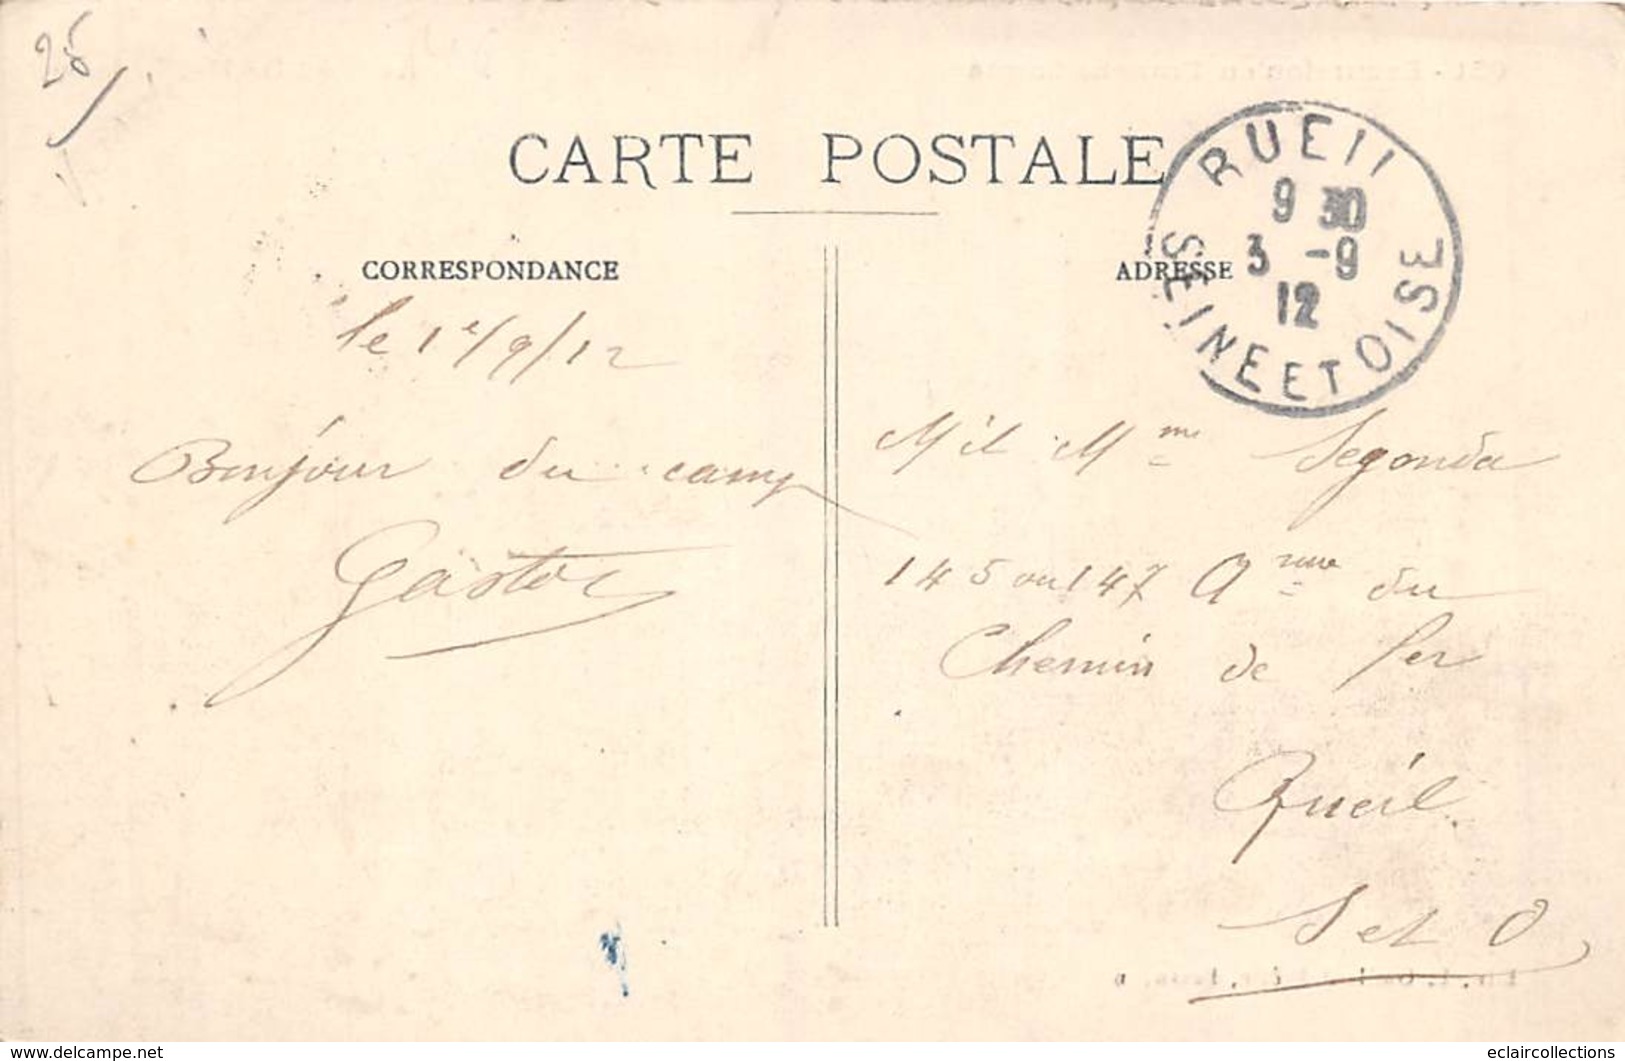 25
CARTE POSTALE
RUEIL
9 30
3 -9
12
SEINE ET OISE
CORRESPONDANCE
ADRESSE
le 1e/9/12
Bonjour du camp
Gaston
M et Mme Segonda
145 ou 147 Anue du
Chemin de fer
Rueil
S et O
www.delcampe.net
eclaircollections